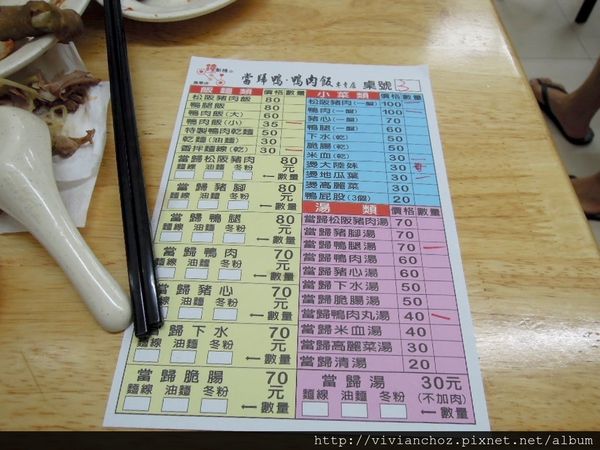 當歸鴨·鴨肉飯專賣店 桌號
飯麵類 價格 數量
松阪豬肉飯 80
鴨腿飯 80
鴨肉飯(大) 60
鴨肉飯(小) 35
特製鴨肉乾麵 50
乾麵(油麵) 30
香拌麵線(乾) 30
當歸松阪豬肉 80元
麵線 油麵 冬粉 ←數量
當歸豬腳 80元
麵線 油麵 冬粉 ←數量
當歸鴨腿 80元
麵線 油麵 冬粉 ←數量
當歸鴨肉 70元
麵線 油麵 冬粉 ←數量
當歸豬心 70元
麵線 油麵 冬粉 ←數量
當歸下水 70元
麵線 油麵 冬粉 ←數量
當歸脆腸 70元
麵線 油麵 冬粉 ←數量
小菜類 價格 數量
松阪豬肉(一盤) 100
鴨肉(一盤) 100
豬心(一盤) 70
鴨腿(一盤) 60
下水(乾) 50
脆腸(乾) 50
米血(乾) 30
燙大陸妹 30
燙地瓜葉 30
燙高麗菜 30
鴨屁股(3個) 20
湯類 價格 數量
當歸松阪豬肉湯 70
當歸豬腳湯 70
當歸鴨腿湯 70
當歸鴨肉湯 60
當歸豬心湯 60
當歸下水湯 50
當歸脆腸湯 50
當歸鴨肉丸湯 40
當歸米血湯 40
當歸高麗菜湯 30
當歸清湯 20
當歸湯 30元
麵線 油麵 冬粉 (不加肉)
←數量
http://vivianchoz.pixnet.net/album